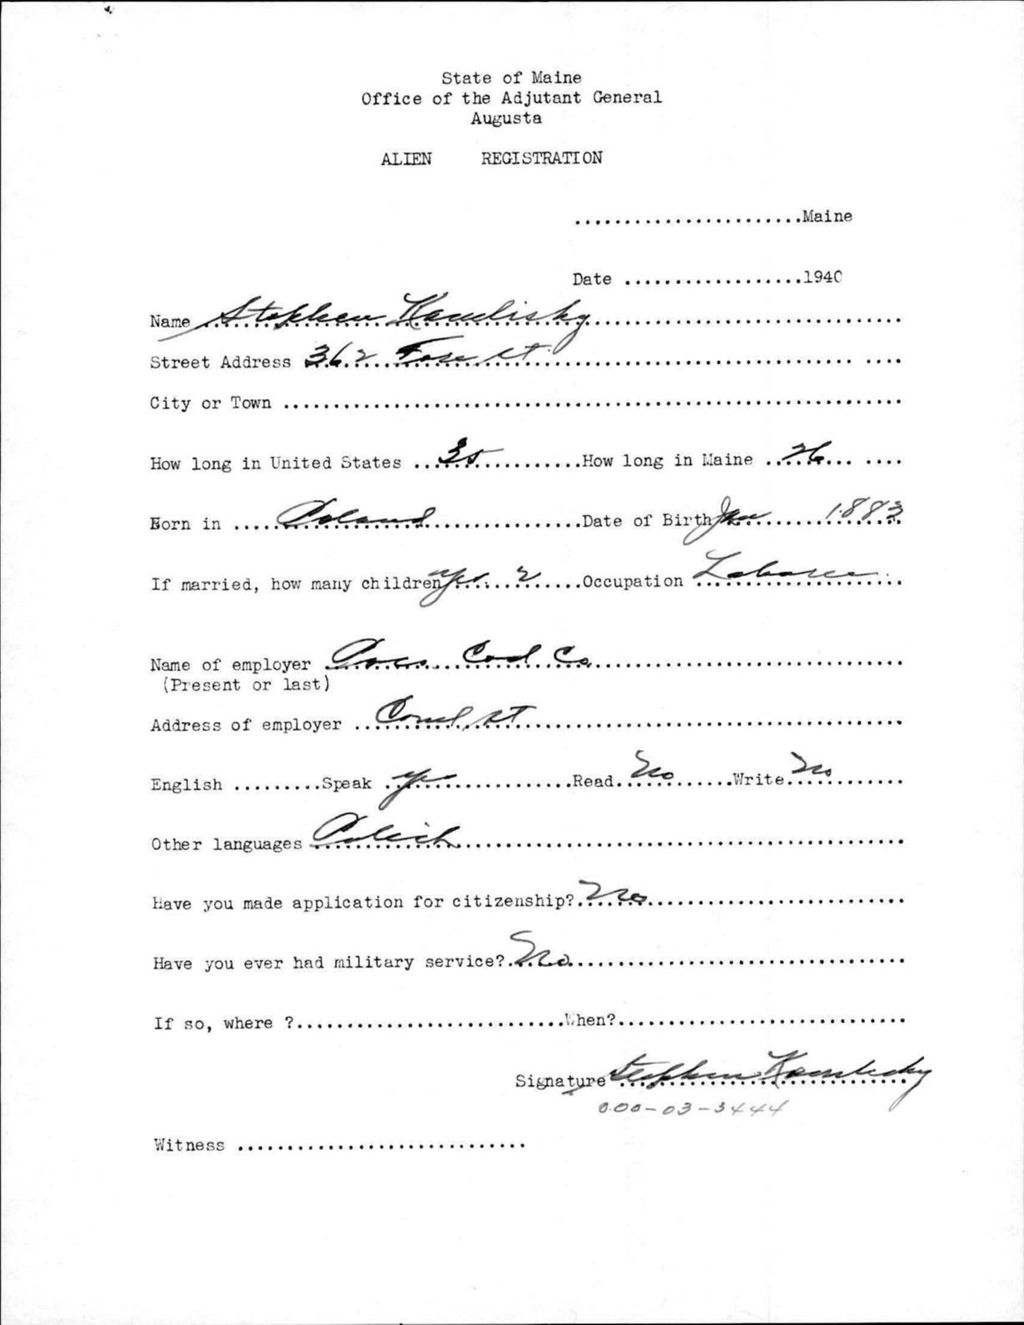 State of Maine
Office of the Adjutant General
Augusta
ALIEN REGISTRATION
.......................Maine
Date ..................1940
Name Stephen Kamlisky
Street Address 362 Fore st
City or Town
How long in United States 30 How long in Maine 26
Born in Poland Date of Birth Jan 1883
If married, how many children yes 2 Occupation Laborer
Name of employer Coal Co
(Present or last)
Address of employer Coml st
English .........Speak yes Read No Write No
Other languages Polich
Have you made application for citizenship? No
Have you ever had military service? No
If so, where ? When?
Signature Stephen
000-03-3444
Witness